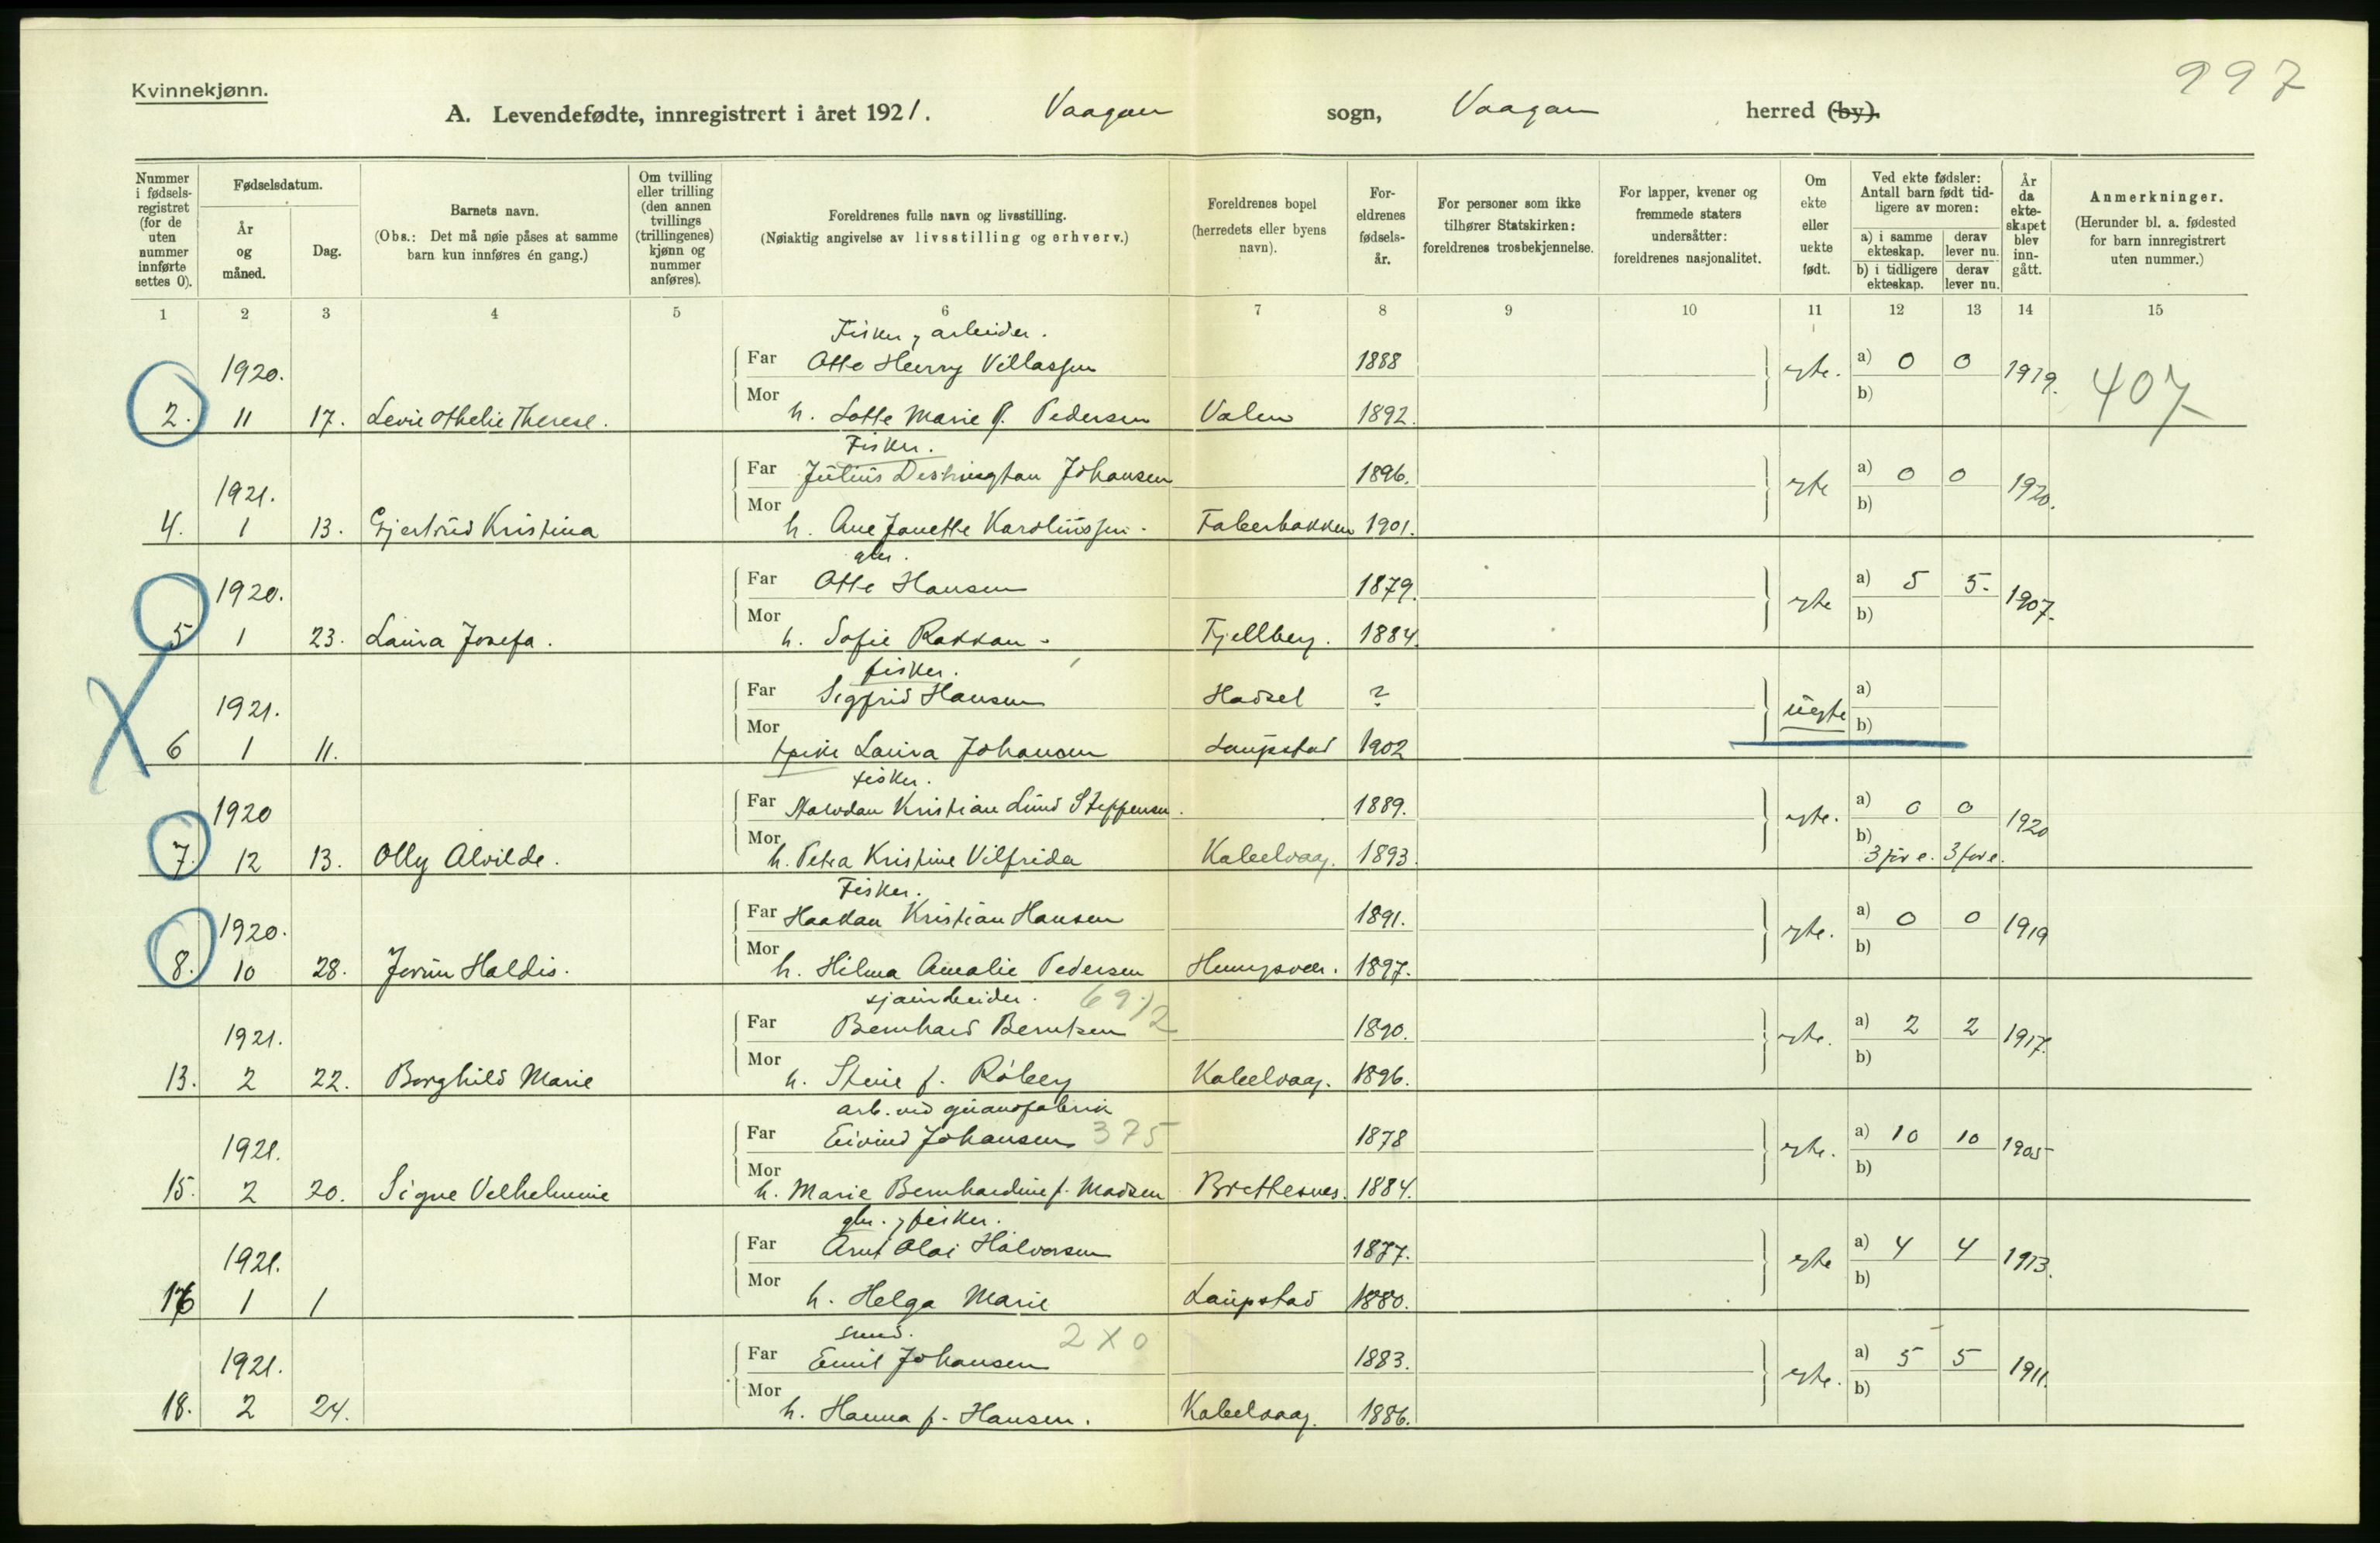 997
Kvinnekjønn.
A. Levendefødte, innregistrert i året 1921. Vaagan sogn, Vaagan herred (by).
Nummer i fødsels-registret (for de uten nummer innførte settes 0).
Fødselsdatum.
År og måned.
Dag.
Barnets navn.
(Obs.: Det må nøie påses at samme barn kun innføres én gang.)
Om tvilling eller trilling (den annen tvillings (trillingenes) kjønn og nummer anføres).
Foreldrenes fulle navn og livsstilling.
(Nøiaktig angivelse av livsstilling og erhverv.)
Foreldrenes bopel (herredets eller byens navn).
For-eldrenes fødsels-år.
For personer som ikke tilhører Statskirken: foreldrenes trosbekjennelse.
For lapper, kvener og fremmede staters undersåtter: foreldrenes nasjonalitet.
Om ekte eller uekte født.
Ved ekte fødsler: Antall barn født tid-ligere av moren:
a) i samme ekteskap. derav lever nu.
b) i tidligere ekteskap. derav lever nu.
År da ekte-skapet blev inn-gått.
Anmerkninger.
(Herunder bl. a. fødested for barn innregistrert uten nummer.)
1 2 3 4 5 6 7 8 9 10 11 12 13 14 15
Fisker, arbeider.
1920. Far Otto Henry Villassen 1888 egte. a) 0 0 1919. 407
2. 11 17. Levie Othelie Therese. Mor h. Lotte Marie P. Pedersen Valen 1892. b)
Fisker.
1921. Far Julius Deshington Johansen 1896. egte a) 0 0 1920.
4. 1 13. Gjertrud Kristina Mor h. Ane Janette Karoliussen. Faberbakken 1901. b)
gbr.
1920. Far Otto Hansen 1879. egte a) 5 5. 1907.
5 1 23. Laura Josefa. Mor h. Sofie Rakkan. Fjellberg. 1884. b)
fisker.
1921. Far Sigfrid Hansen Hadsel ? uegte a)
6 1 11. Mor pike Laura Johansen Laupstad 1902 b)
fisker.
1920 Far Kristian Lund Steffensen. 1889. egte. a) 0 0 1920
7. 12 13. Olly Alvilde. Mor h. Petra Kristine Vilfrida Kabelvaag. 1893. b) 3 før e. 3 før e.
Fisker.
1920. Far Haakan Kristian Hansen 1891. egte. a) 0 0 1919
8. 10 28. Jorun Haldis. Mor h. Hilma Amalie Pedersen 1897. b)
sjauarbeider. 69/2
1921. Far Bernhard Berntsen 1890. egte. a) 2 2 1917.
13. 2 22. Borghild Marie Mor h. Stine f. Röberg Kabelvaag. 1896. b)
arb. ved guanofabrik
1921. Far Eivind Johansen 375 1878 egte. a) 10 10 1905
15. 2 20. Signe Velhelmine Mor h. Marie Bernhardine f. Madsen Brettesnes. 1884. b)
gbr., fisker.
1921. Far Arnt Olai Halvorsen 1877. egte a) 4 4 1913.
16 1 1 Mor h. Helga Marie Laupstad 1880. b)
smed. 2 X 0
1921. Far Emil Johansen 1883. egte. a) 5 5 1911.
18. 2 24. Mor h. Hanna f. Hansen. Kabelvaag. 1886. b)